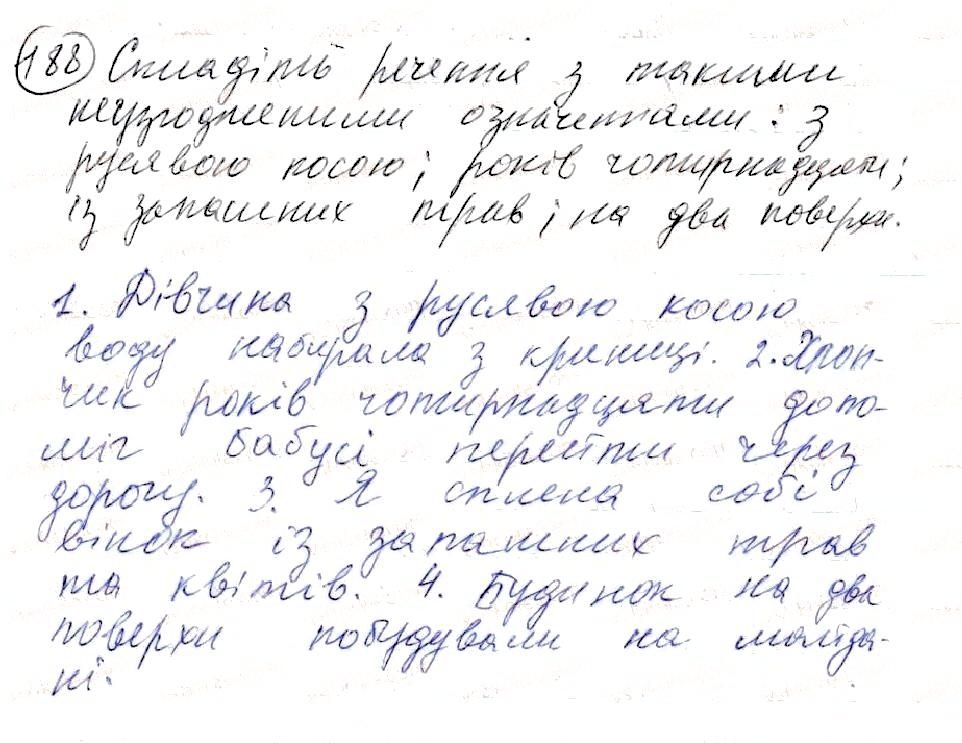 188 Складіть речення з такими
неузгодженими означеннями: з
русявою косою; років чотирнадцяти;
із запашних трав; на два поверхи.
1. Дівчина з русявою косою
воду набирала з криниці. 2. Хлоп-
чик років чотирнадцяти допо-
міг бабусі перейти через
дорогу. 3. Я сплела собі
вінок із запашних трав
та квітів. 4. Будинок на два
поверхи побудували на майда-
ні.